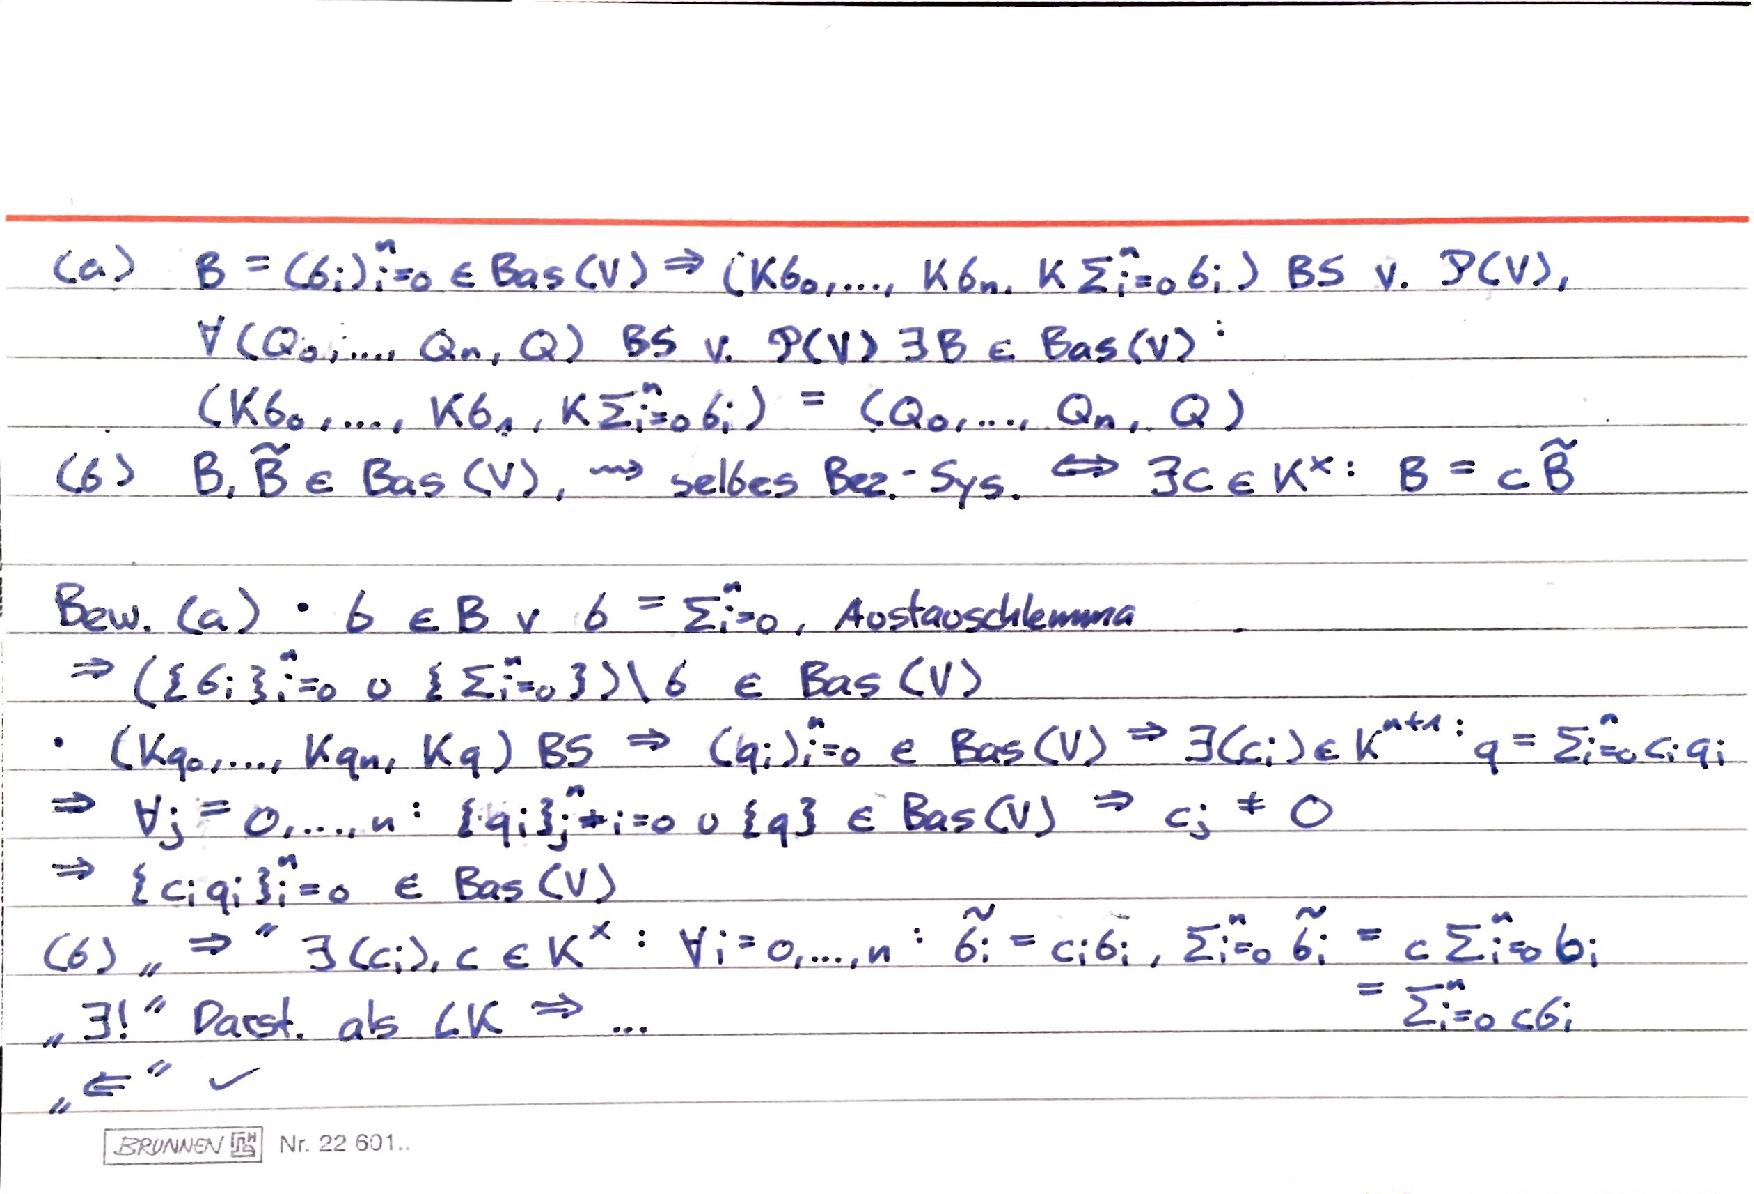 (a) B = (b_i)_{i=0}^n ∈ Bas(V) ⇒ (Kb_0,..., Kb_n, K Σ_{i=0}^n b_i) BS v. P(V),
∀(Q_0,..., Q_n, Q) BS v. P(V) ∃B ∈ Bas(V):
(Kb_0,..., Kb_n, K Σ_{i=0}^n b_i) = (Q_0,..., Q_n, Q)
(b) B, B̃ ∈ Bas(V), ⇝ selbes Bez.-Sys. ⇔ ∃c ∈ K^×: B = cB̃
Bew. (a) • b ∈ B ∨ b = Σ_{i=0}^n, Austauschlemma
⇒ ({b_i}_{i=0}^n ∪ {Σ_{i=0}^n})\b ∈ Bas(V)
• (Kq_0,..., Kq_n, Kq) BS ⇒ (q_i)_{i=0}^n ∈ Bas(V) ⇒ ∃(c_i) ∈ K^{n+1}: q = Σ_{i=0}^n c_i q_i
⇒ ∀j = 0,...,n: {q_i}_{j≠i=0}^n ∪ {q} ∈ Bas(V) ⇒ c_j ≠ 0
⇒ {c_i q_i}_{i=0}^n ∈ Bas(V)
(b) „⇒“ ∃(c_i), c ∈ K^×: ∀i = 0,...,n: b̃_i = c_i b_i, Σ_{i=0}^n b̃_i = c Σ_{i=0}^n b_i
= Σ_{i=0}^n cb_i
„∃!“ Darst. als LK ⇒ ...
„⇐“ ✓
BRUNNEN Nr. 22 601..